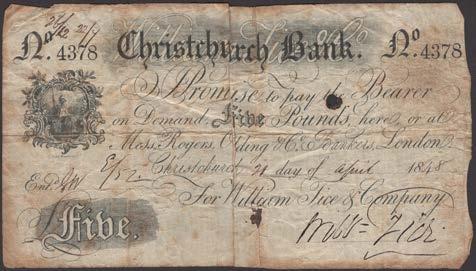 No. 4378 Christchurch Bank. No. 4378
I Promise to pay the Bearer
on Demand, Five Pounds, here or at
Messrs. Rogers, Olding & Co. Bankers, London.
Christchurch 21 day of April 1848
For William Tice & Company
Entd.
Five.
Willm Tice